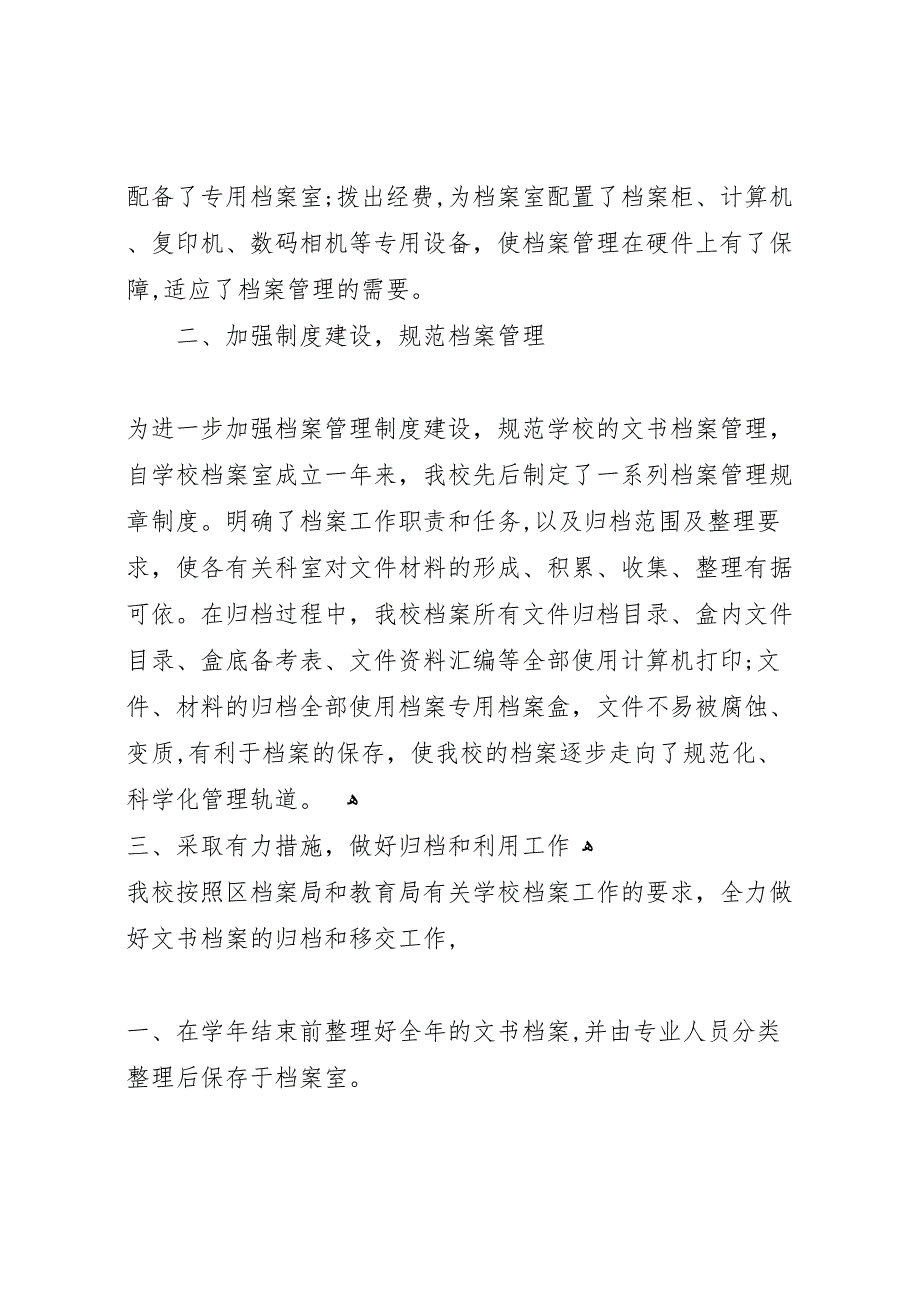 配备了专用档案室;拨出经费,为档案室配置了档案柜、计算机
、复印机、数码相机等专用设备，使档案管理在硬件上有了保
障,适应了档案管理的需要。
二、加强制度建设，规范档案管理
为进一步加强档案管理制度建设，规范学校的文书档案管理，
自学校档案室成立一年来，我校先后制定了一系列档案管理规
章制度。明确了档案工作职责和任务,以及归档范围及整理要
求，使各有关科室对文件材料的形成、积累、收集、整理有据
可依。在归档过程中，我校档案所有文件归档目录、盒内文件
目录、盒底备考表、文件资料汇编等全部使用计算机打印;文
件、材料的归档全部使用档案专用档案盒，文件不易被腐蚀、
变质,有利于档案的保存，使我校的档案逐步走向了规范化、
科学化管理轨道。 ﻫ
三、采取有力措施，做好归档和利用工作 ﻫ
我校按照区档案局和教育局有关学校档案工作的要求，全力做
好文书档案的归档和移交工作,
一、在学年结束前整理好全年的文书档案,并由专业人员分类
整理后保存于档案室。